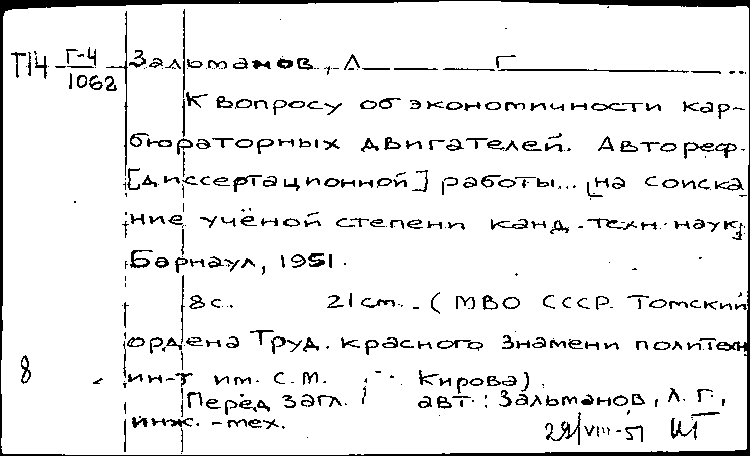 Т14 Г-4/1062 Зальманов, Л Г
К вопросу об экономичности кар-
бюраторных двигателей. Автореф.
[диссертационной] работы... [на соиска
ние учёной степени канд. техн. наук]
Барнаул, 1951.
8с. 21 cm. (МВО СССР. Томский
ордена Труд. красного Знамени политехн
8 ин-т им. С.М. Кирова).
Перед загл. авт.: Зальманов, Л. Г.,
инж.-мех.
29/VIII-51